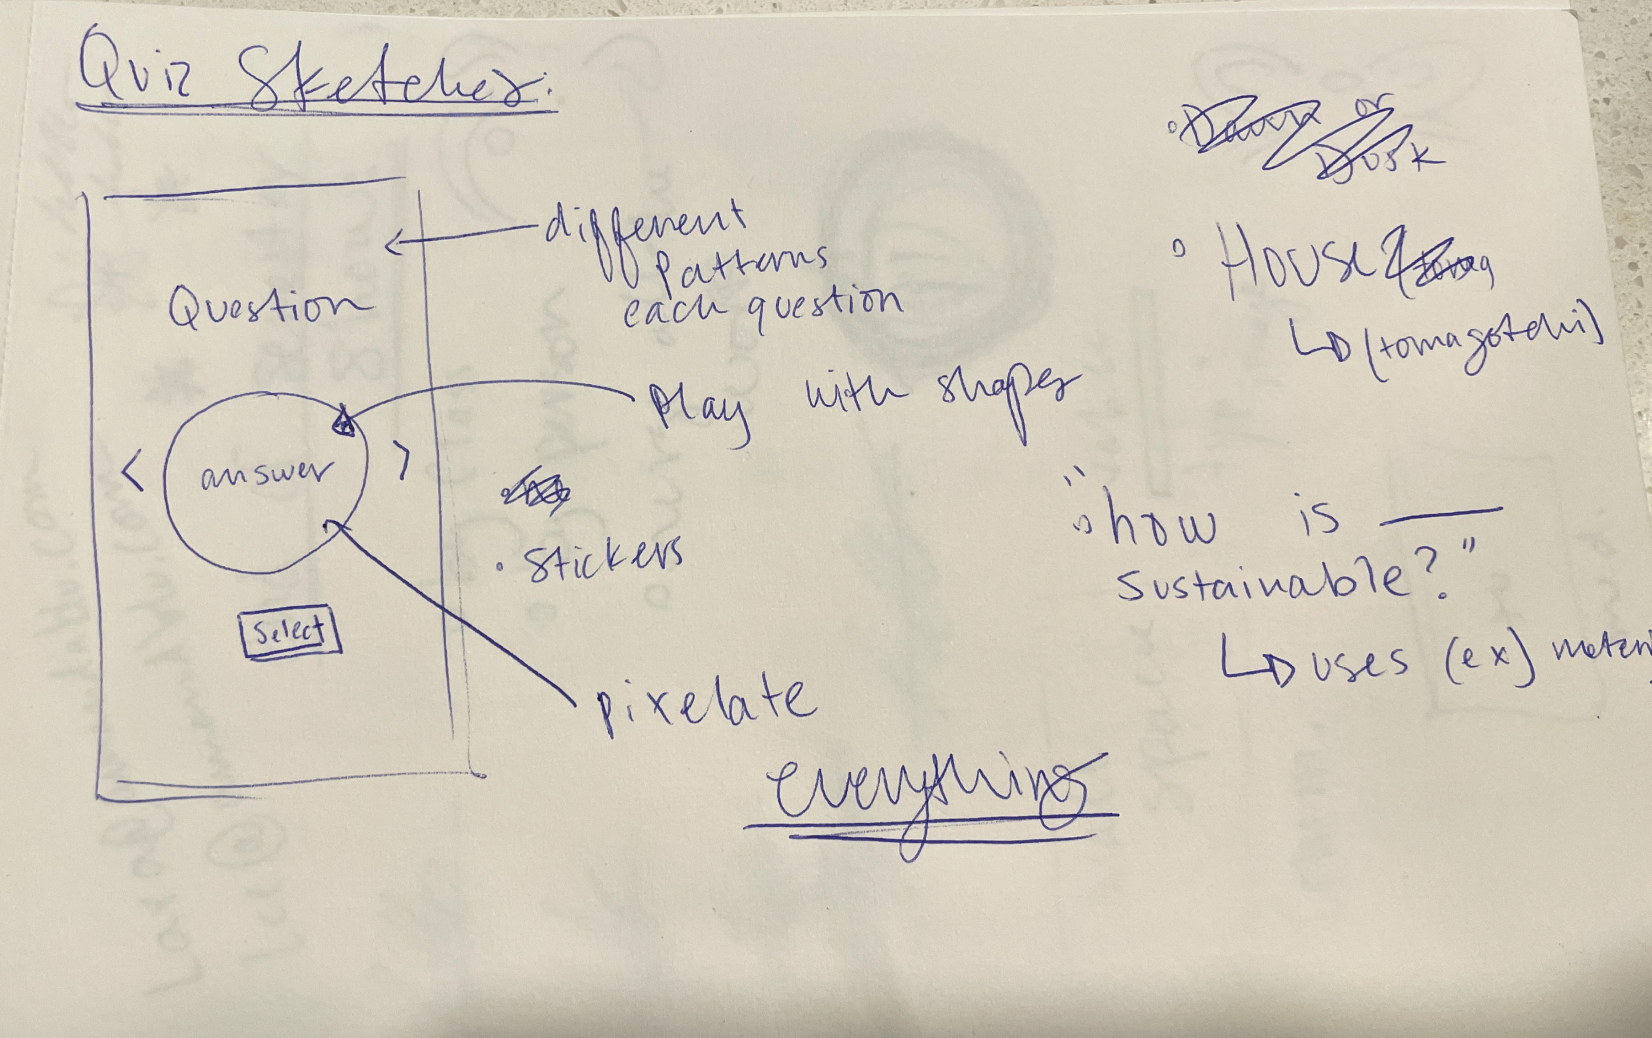 Quiz Sketches:
Question
< answer >
Select
different
patterns
each question
play with shapes
• Stickers
pixelate
everything
• Dawn or
Dusk
• House?
↳ (tomagotchi)
• "how is ___
sustainable?"
↳ uses (ex)